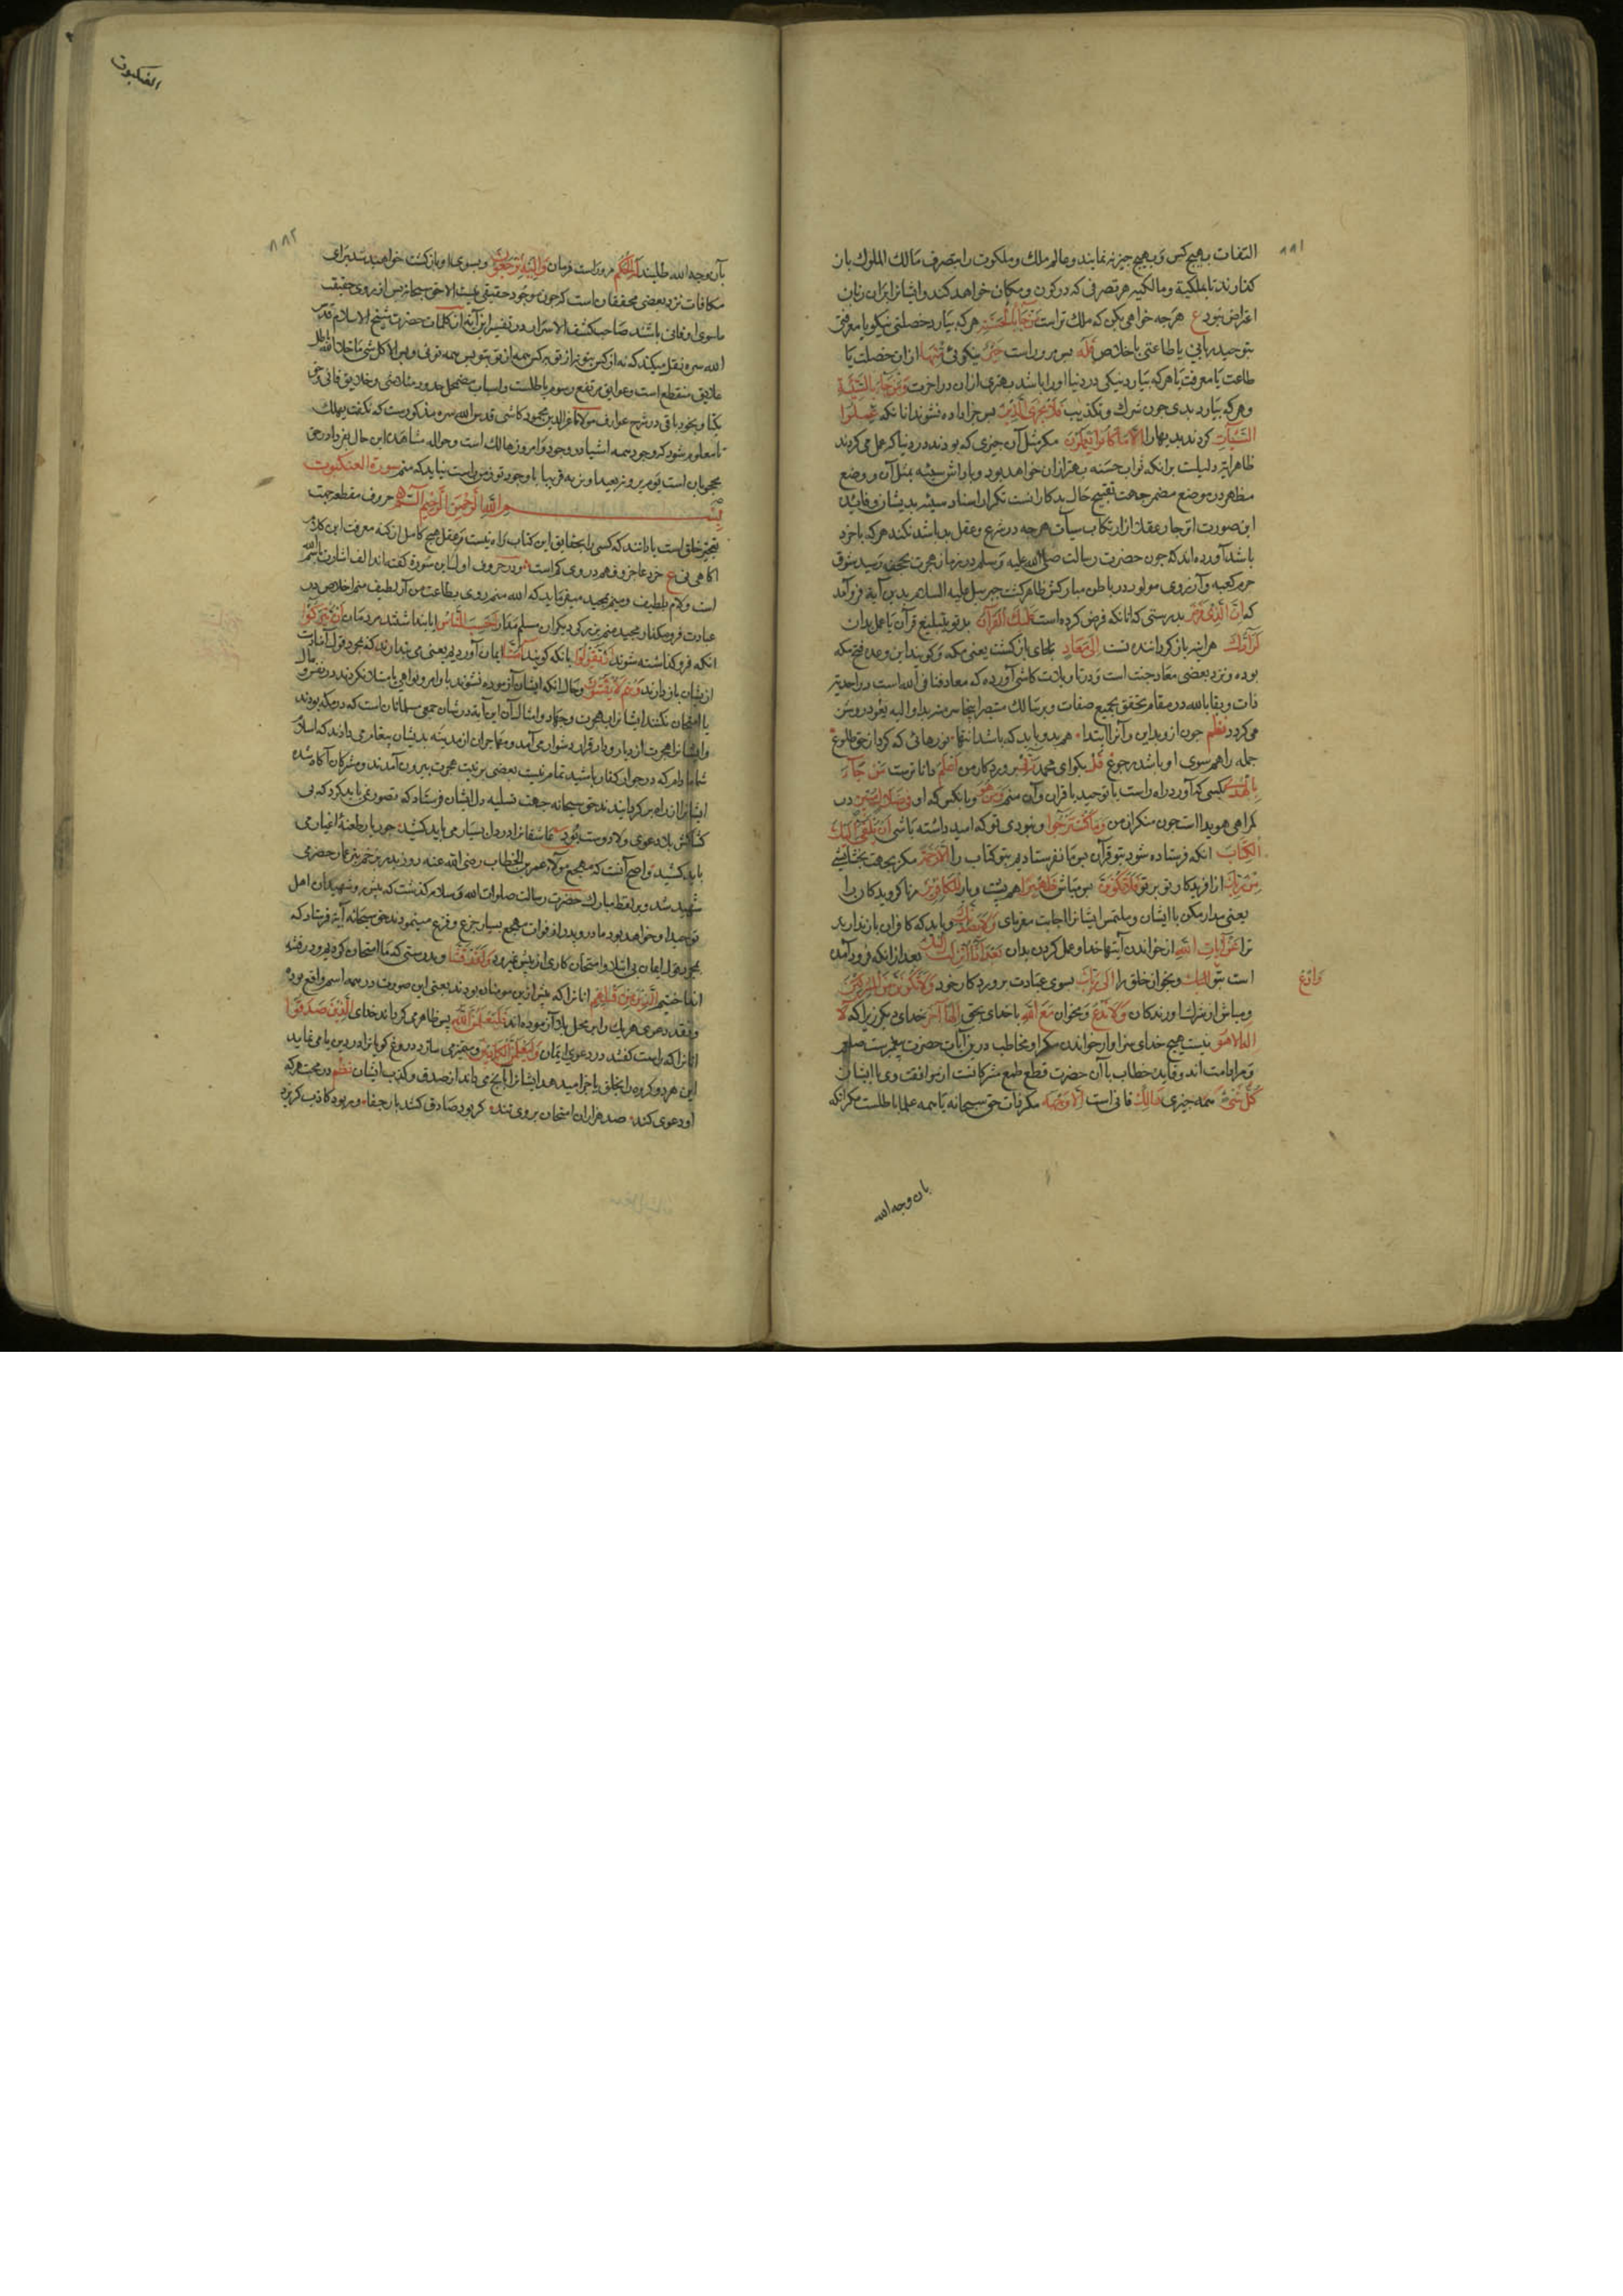 ٨٨١
التفات بهیچ کس و بهیچ چیز نه نمایند و عالم ملک و ملکوت را بتصرف مالک الملوک باز
کذارند تا بملکیة و مالکیه هر تصرفی که در کون و مکان خواهد کند و ایشانرا بران زبان
اعتراض نبود ع هرچه خواهی بکن که ملک تراست مَن جَآءَ بِالْحَسَنَةِ هر که بیارد خصلتی نیکو یا معرفتی
بتوحید ربانی یا طاعتی باخلاص فَلَهُ پس مر وراست خَیْرٌ نیکوئی مِنْهَا ازان خصلت یا
طاعت یا معرفت یا هر که بیارد نیکی در دنیا او را باشد بهتری ازان در اخرت وَمَن جَآءَ بِالسَّیِّئَةِ
و هر که بیارد بدی چون شرک و تکذیب فَلَا یُجْزَی الَّذِینَ پس جزا داده نشوند انانکه عَمِلُوا
السَّیِّآتِ کردند بدیها را اِلَّا مَا کَانُوا یَعْمَلُونَ مکر مثل آن چیزی که بودند در دنیا که عمل می کردند
ظاهر ایة دلیلست برانکه ثواب حسنه بهتر ازان خواهد بود و پاداش سیئه بمثل آن و وضع
مظهر در موضع مضمر جهت تقبیح حال بدکارانست تکرار اسناد سیئه بدیشان و فایدۀ
این صورت انزجار عقلا از ارتکاب سیآت هر چه در شرع و عقل بد باشد نکند هر که باخرد
باشد آورده اند که چون حضرت رسالت صلی الله علیه وسلم در زمان هجرت بجحفه رسید شوق
حرم کعبه و آرزوی مولود در باطن مبارکش ظاهر کشت جبرییل علیه السلام بدین آیة فرو آمد
که اِنَّ الَّذِی فَرَضَ بدرستی که انانکه فرض کرده است عَلَیْکَ الْقُرْآنَ بر تو تبلیغ قرآن یا عمل بدان
لَرَآدُّکَ هر اینه باز کرداننده تست اِلَی مَعَادٍ بجای بازکشت یعنی مکه و کویند این وعده فتح مکه
بوده و نزد بعضی معاد جنت است و در تاویلات کاشی آورده که معاد فنا فی الله است در احدیة
ذات و بقا بالله در مقام تحقق بجمیع صفات و بر سالک متبصر اینجا سر منه بدا و الیه یعود روشن
می کردد نظم چون از و بداین و آنرا ابتدا ٭ هم بدو باید که باشد انتها ٭ نورهائی که کرد از حق طلوع
جمله را هم سوی او باشد رجوع قُلْ بکو ای محمد رَبِّی پروردکار من اَعْلَمُ دانا ترست مَن جَآءَ
بِالْهُدَی بکسی که آورد راه راست با توحید یا قران و آن منم وَمَنْ هُوَ و بانکس که او فِی ضَلَالٍ مُبِینٍ در
کمراهی هویدا است چون منکران من وَمَا کُنْتَ تَرْجُوا و نبودی تو که امید داشته باشی اَن یُلْقَی اِلَیْکَ
الْکِتَابُ انکه فرستاده شود بتو قرآن پس ما نفرستادیم بتو کتاب را اِلَّا رَحْمَةً مکر بجهت بخشایشی
مِن رَبِّکَ از افریدکار تو بر تو فَلَا تَکُونَنَّ پس مباش ظَهِیرًا هم پشت و یار لِلْکَافِرِینَ مر ناکرویدکان را
یعنی مدار مکن با ایشان و ملتمس ایشانرا اجابت مفرمای وَلَا یَصُدُّنَّکَ و باید که کافران باز ندارند
ترا عَنْ آیَاتِ اللَّهِ از خواندن آیتها خدا و عمل کردن بدان بَعْدَ اِذْ اُنْزِلَتْ اِلَیْکَ بعد ازانکه فرود آمده
است بتو وَادْعُ و بخوان خلق را اِلَی رَبِّکَ بسوی عبادت پروردکار خود وَلَا تَکُونَنَّ مِنَ الْمُشْرِکِینَ
و مباش از شرک اورندکان وَلَا تَدْعُ و مخوان مَعَ اللَّهِ با خدای بحق اِلَهًا آخَرَ خدای دیکر زیراکه لَا
اِلَهَ اِلَّا هُوَ نیست هیچ خدای سزاوار خواندن مکر او مخاطب درین آیات حضرت پیغمبرست صلعم
و مراد امت اند و فایده خطاب با آن حضرت قطع طمع مشرکانست از موافقت وی با ایشان
کُلُّ شَیْءٍ همه چیزی هَالِکٌ فانی است اِلَّا وَجْهَهُ مکر ذات حق سبحانه یا همه عملها باطلست مکر انکه
بان وجه الله
العنکبوت
٨٨٢
بآن وجه الله طلبند لَهُ الْحُکْمُ مر وراست فرمان وَاِلَیْهِ تُرْجَعُونَ و بسوی او باز کشته خواهید شد برای
مکافات نزد بعضی محققان است که چون وجود حقیقی نیست الا حق سبحانه پس از روی حقیقت
ماسوی او فانی باشند صاحب کشف الاسرار در تفسیر این آیة از کلمات حضرت شیخ الاسلام قدس
الله سره نقل میکند که
علایق منقطع است و عوایق مرتفع و رسوم باطلست و اسباب مضمحل و حدود متلاشی و خلایق فانی و حق
یکتا و بخود باقی در شرح عوارف مولانا عزالدین محمود کاشی قدس الله سره مذکورست که نکفت یهلک
تا معلوم شود که وجود همه اشیا در وجود او امروز هالک است و حواله مشاهدۀ این حال بفردا در حق
محجوبان است یوم یرونه بعیدا و نریه قریبا سورة العنکبوت
بِسْمِ اللَّهِ الرَّحْمَنِ الرَّحِیمِ الٓمٓ حروف مقطعه جهت
تعجیز خلق است تا دانند که کسی را بحقایق این کتاب راه نیست و عقل هیچ کامل از کنه معرفت این کلام
اکاهی نی ع خرد عاجز و فهم در وی کم است
است و لام بلطیف و میم بمجید میفرماید که الله منم روی بطاعت من آر لطیف منم اخلاص در
عبادت فرو مکذار مجید منم بزرکی دیکران مسلم مدار اَحَسِبَ النَّاسُ ایا پنداشتند مردمان اَن یُتْرَکُوا
انکه فرو کذاشته شوند اَن یَقُولُوا بانکه کویند آمَنَّا ایمان آوردیم یعنی می پندارند که بمجرد قول
از ایشان باز دارند وَهُمْ لَا یُفْتَنُونَ و حال انکه ایشان آزموده نشوند باوامر و نواهی
یا امتحان نکنند ایشانرا بهجرت و جهاد و امثال آن این آیة در شان جمعی مسلمانان است که در مکه بودند
و ایشانرا هجرت از دیار و دار قرار دشوار می آمد و مهاجران از مدینه بدیشان پیغام می دادند که اسلام
شما مادام که در جوار کفار باشید تمام نیست بعضی بر نیت هجرت بیرون آمدند و مشرکان آکاه شده
ایشانرا از راه بر کردانیدند حق سبحانه جهت تسلیه دل ایشان فرستاد که تصور نمی باید کرد که بی
کشاکش بلا دعوی ولا درست بود عاشقانرا درد دل بسیار می باید کشید ٭ جور یار و طعنۀ اغیار می
باید کشید و اصح آنست که مهجع مولای عمر بن الخطاب رضی الله عنه روز بدر بزخم تیر عامر حضرمی
شهید شد و بر لفظ مبارک حضرت رسالت صلوات الله و سلامه کذشت که پیش رو شهیدان اهل
توحید او خواهد بود مادر و پدر او از فوات مهجع بسیار جزع و فزع مینمودند حق سبحانه آیة فرستاد که
بمجرد قول ایمان بی ابتلا و امتحان کاری از پیش نمی رود وَلَقَدْ فَتَنَّا و بدرستی که ما امتحان کردیم و در فتنه
انداختیم الَّذِینَ مِن قَبْلِهِمْ انانرا که پیش ازین مومنان بودند یعنی این صورت در همه امم واقع بوده
و نقد دعوی هر یک را بر محک بلا آزموده اند فَلَیَعْلَمَنَّ اللَّهُ پس ظاهر می کرداند خدای الَّذِینَ صَدَقُوا
انانرا که راست کفتند در دعوی ایمان وَلَیَعْلَمَنَّ الْکَاذِبِینَ و متمیز می سازد دروغ کویانرا در دین یا می نماید
این هر دو کروه را بخلق یا جزا میدهد ایشانرا بانچه می داند از صدق و کذب ایشان نظم در محبت هر که
او دعوی کند ٭ صد هزاران امتحان بر وی تند ٭ کر بود صادق کشد بار جفا ٭ ور بود کاذب کریزد